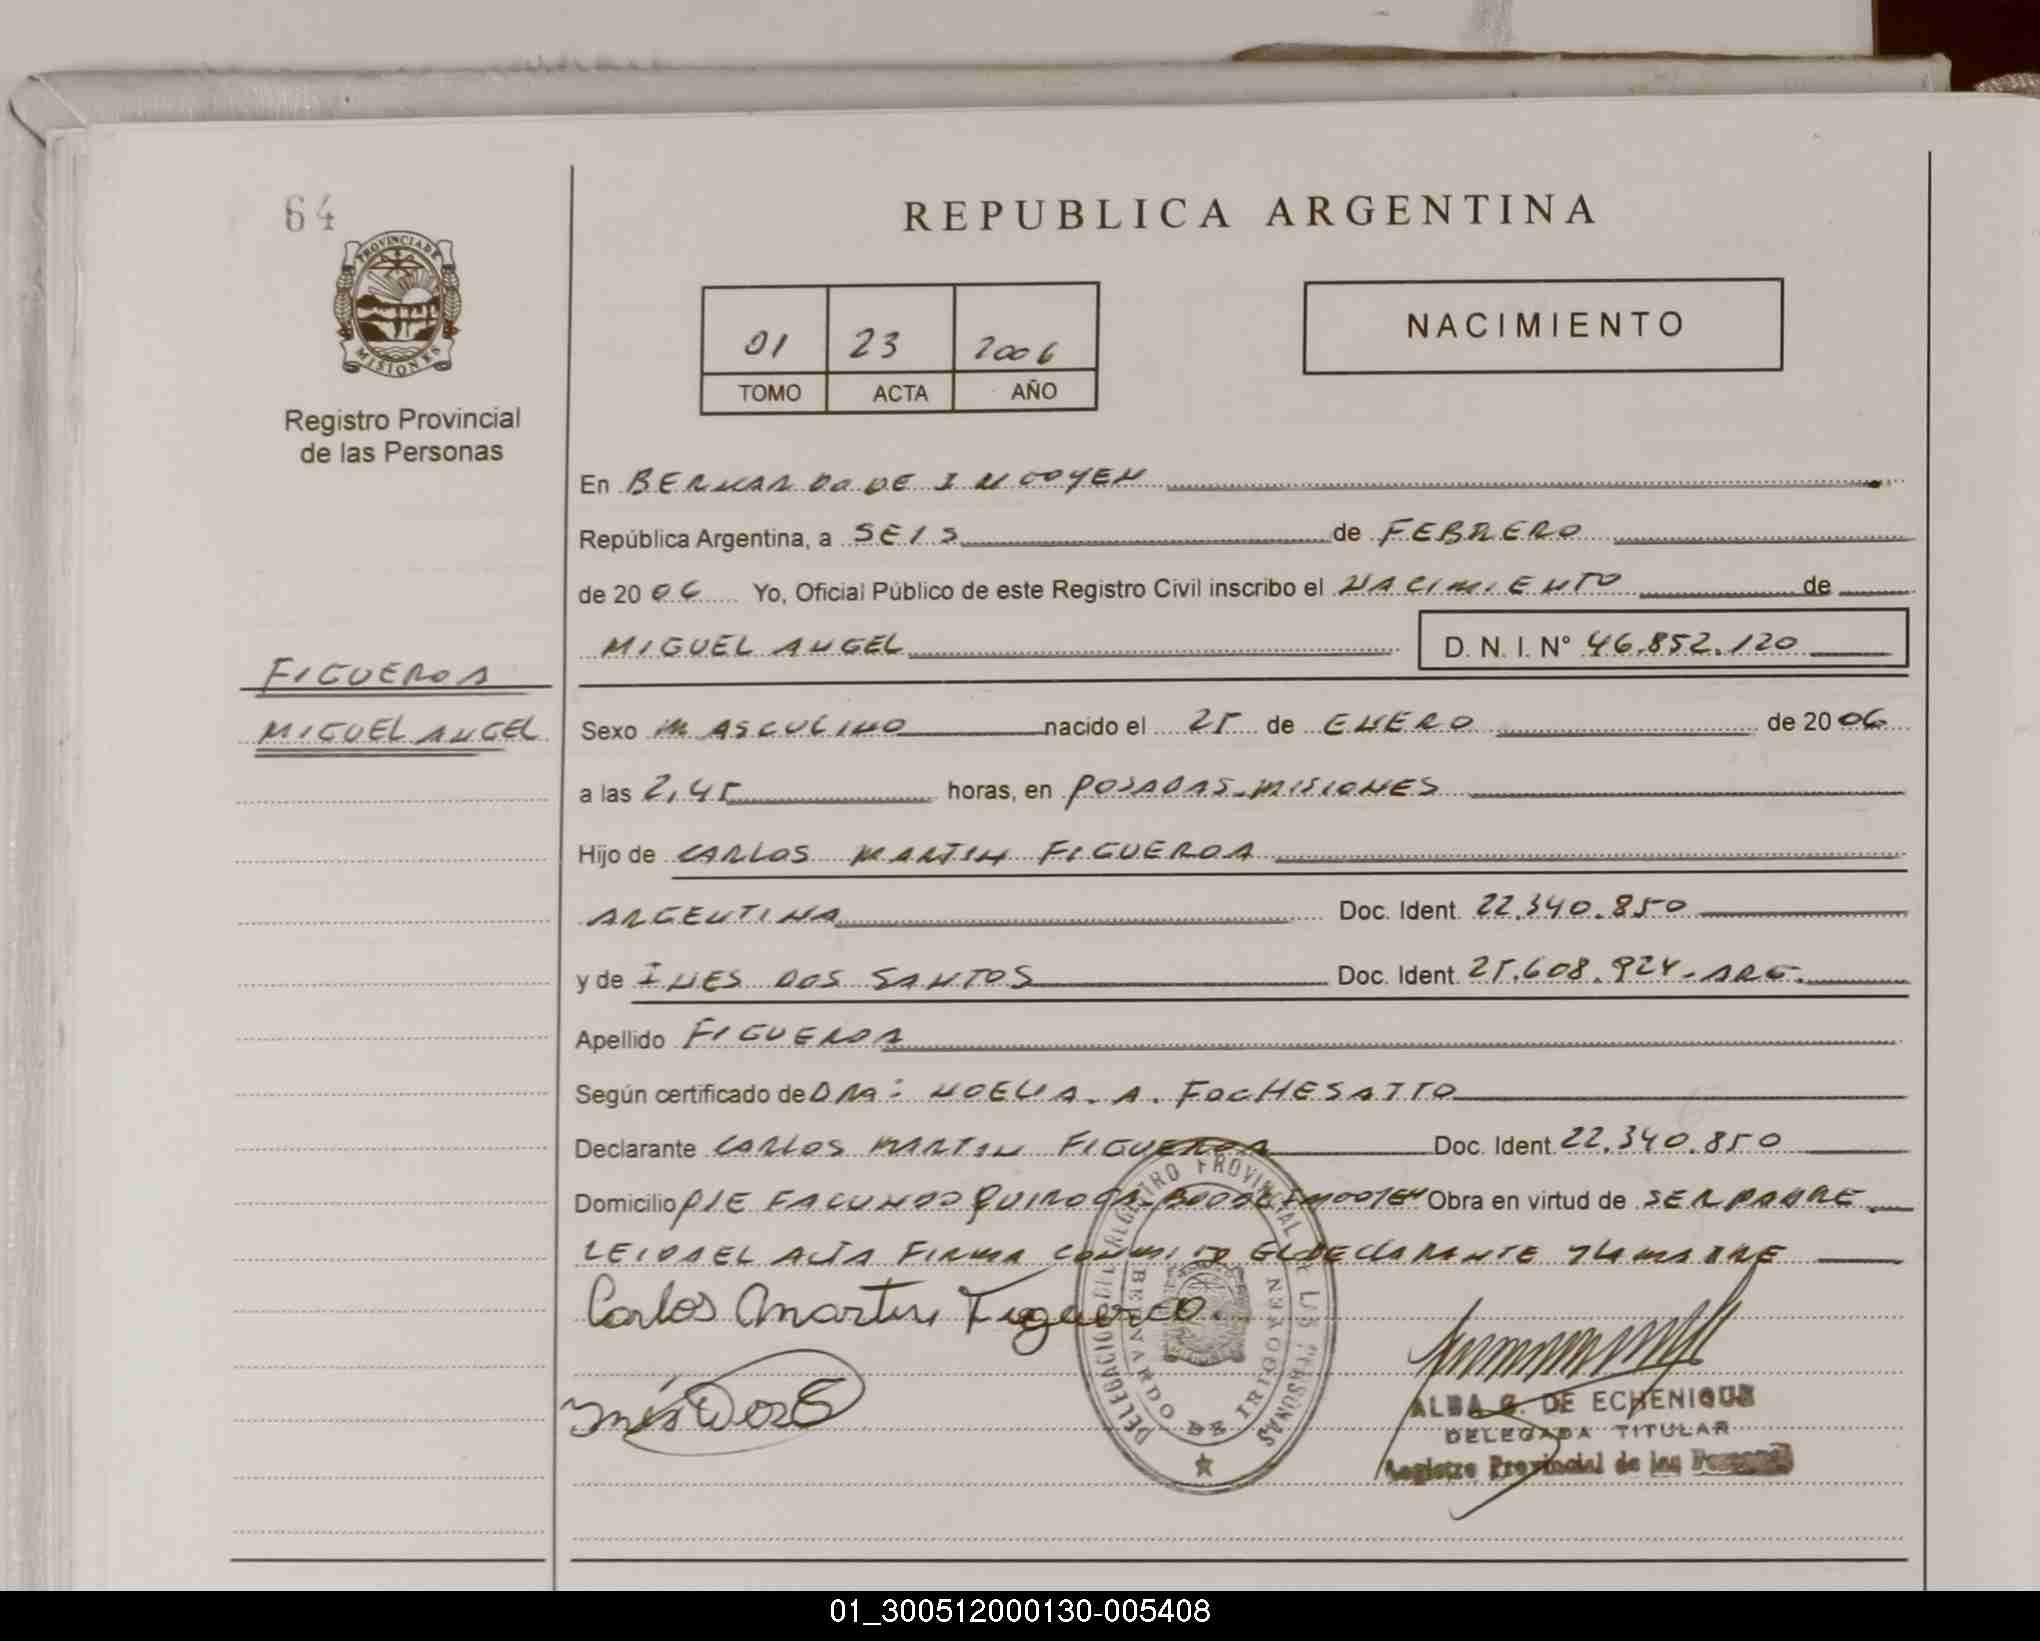 64
PROVINCIA DE
MISIONES
Registro Provincial
de las Personas
REPUBLICA ARGENTINA
01 23 2006
TOMO ACTA AÑO
NACIMIENTO
En BERNARDO DE IRIGOYEN
República Argentina, a SEIS de FEBRERO
de 2006 Yo, Oficial Público de este Registro Civil inscribo el NACIMIENTO de
MIGUEL ANGEL D. N. I. N° 46.852.120
FIGUEROA
MIGUEL ANGEL
Sexo MASCULINO nacido el 25 de ENERO de 2006
a las 2,45 horas, en POSADAS-MISIONES
Hijo de CARLOS MARTIN FIGUEROA
ARGENTINA Doc. Ident. 22.340.850
y de INES DOS SANTOS Doc. Ident. 25.608.924-ARG.
Apellido FIGUEROA
Según certificado de DRA: NOELIA. A. FOCHESATTO
Declarante CARLOS MARTIN FIGUEROA Doc. Ident. 22.340.850
Domicilio PJE FACUNDO QUIROGA Obra en virtud de SER PADRE
LEIDA EL ACTA FIRMA CONMIGO EL DECLARANTE Y LA MADRE
Carlos Martin Figueroa.
Inés Dos S
DELEGACION DEL REGISTRO PROVINCIAL DE LAS PERSONAS
BERNARDO DE IRIGOYEN
ALBA G. DE ECHENIQUE
DELEGADA TITULAR
Registro Provincial de las Personas
01_300512000130-005408